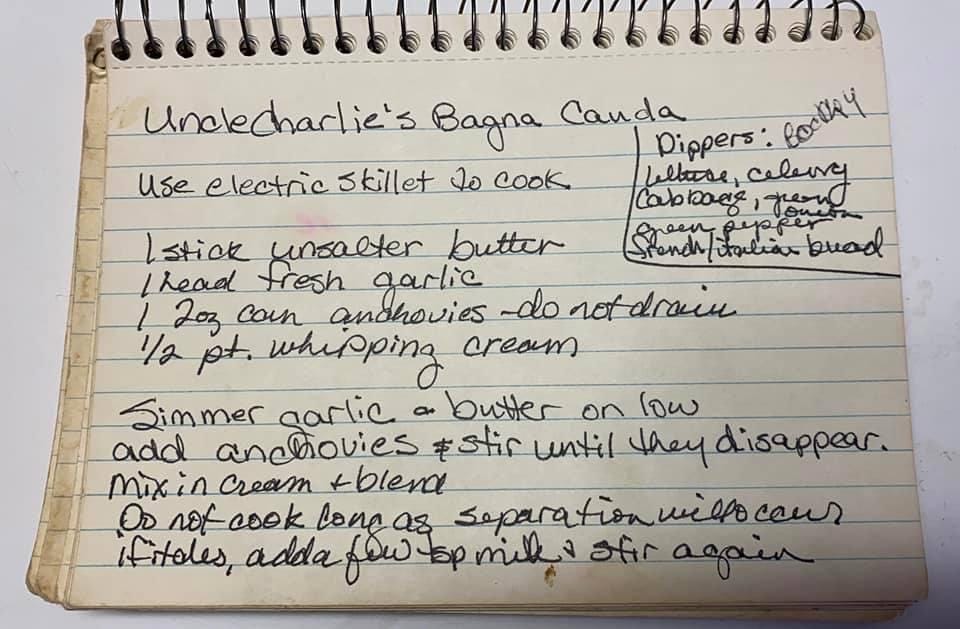 Uncle Charlie's Bagna Cauda
Use electric skillet to cook
Dippers:
lettuce, celery
Cabbage, green
onion
green pepper
french/italian bread
1 stick unsalter butter
1 head fresh garlic
1 2oz can anchovies - do not drain
1/2 pt. whipping cream
Simmer garlic & butter on low
add anchovies & stir until they disappear.
Mix in cream + blend
Do not cook long as separation will occur
if it does, add a few tsp milk & stir again